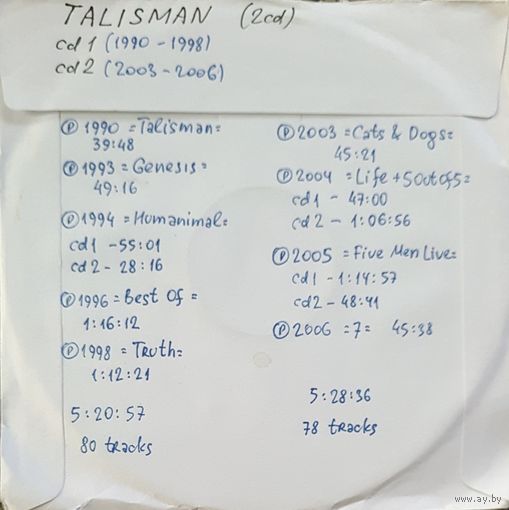 TALISMAN (2cd)
cd 1 (1990 - 1998)
cd 2 (2003 - 2006)
Ⓟ 1990 = Talisman =
39:48
Ⓟ 1993 = Genesis =
49:16
Ⓟ 1994 = Humanimal =
cd 1 - 55:01
cd 2 - 28:16
Ⓟ 1996 = Best Of =
1:16:12
Ⓟ 1998 = Truth =
1:12:21
5:20:57
80 tracks
Ⓟ 2003 = Cats & Dogs =
45:21
Ⓟ 2004 = Life + 5 Out Of 5 =
cd 1 - 47:00
cd 2 - 1:06:56
Ⓟ 2005 = Five Men Live =
cd 1 - 1:14:57
cd 2 - 48:41
Ⓟ 2006 = 7 = 45:38
5:28:36
78 tracks
www.ay.by